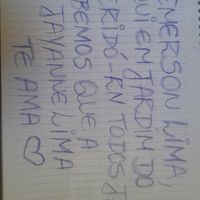 EVERSON LIMA,
UI EM JARDIM DO
ERIDÓ-RN TODOS
BEMOS QUE A
TAYANNE LIMA
TE AMA ♡